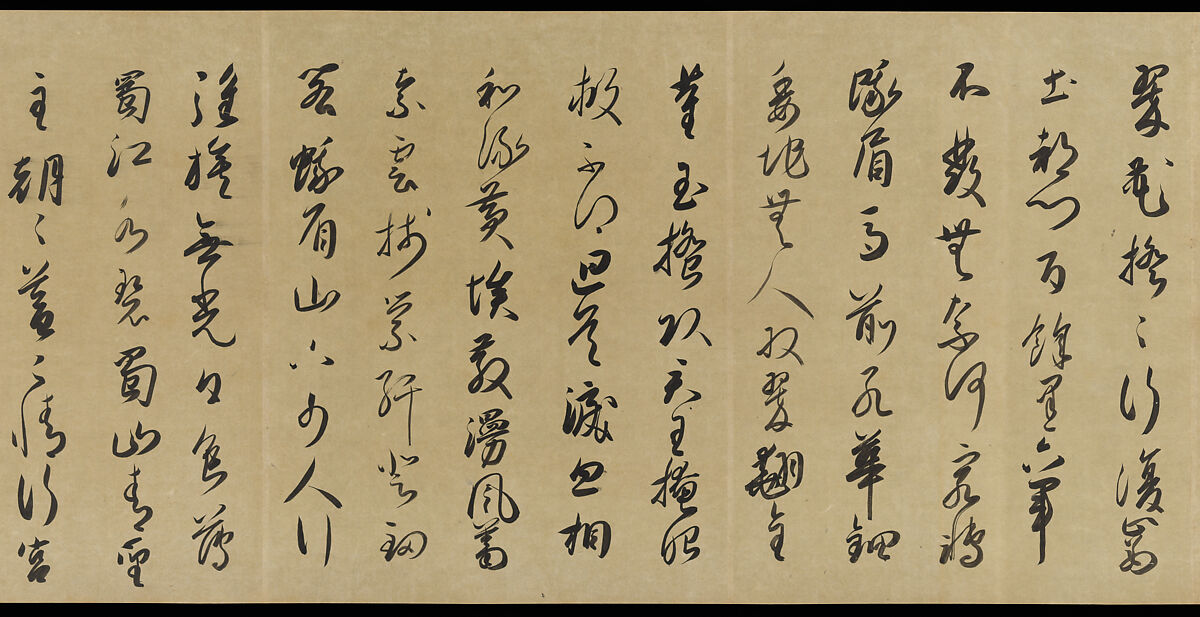 翠花搖〻行復止西
出都門百餘里六軍
不發無奈何宛轉
蛾眉馬前死華鈿
委地無人收翠翹金
雀玉搔頭君王掩眼
救不得迴看淚血相
和流黃埃散漫風蕭
索雲棧縈紆登劍
閣峨眉山下少人行
旌旗無光日色薄
蜀江水碧蜀山青聖
主朝〻暮〻情行宮